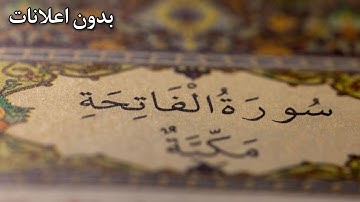 بدون اعلانات
سُورَةُ الْفَاتِحَةِ
مَكِّيَّةٌ